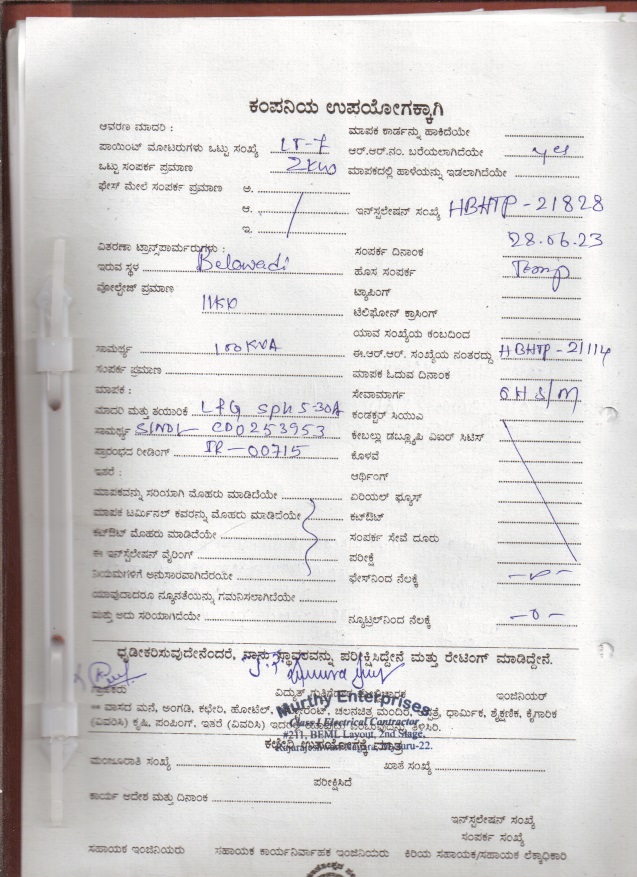 ಕಂಪನಿಯ ಉಪಯೋಗಕ್ಕಾಗಿ
ಆವರಣ ಮಾದರಿ :
ಮಾಪಕ ಕಾರ್ಡನ್ನು ಹಾಕಿದೆಯೇ
ಪಾಯಿಂಟ್ ಮೋಟರುಗಳು ಒಟ್ಟು ಸಂಖ್ಯೆ LT-7
ಆರ್.ಆರ್.ನಂ. ಬರೆಯಲಾಗಿದೆಯೇ yes
ಒಟ್ಟು ಸಂಪರ್ಕ ಪ್ರಮಾಣ 2KW
ಮಾಪಕದಲ್ಲಿ ಹಾಳೆಯನ್ನು ಇಡಲಾಗಿದೆಯೇ
ಫೇಸ್ ಮೇಲೆ ಸಂಪರ್ಕ ಪ್ರಮಾಣ ಅ.
ಆ.
ಇನ್‌ಸ್ಟಲೇಷನ್ ಸಂಖ್ಯೆ HBHTP-21828
ಇ.
28.06.23
ವಿತರಣಾ ಟ್ರಾನ್ಸ್‌ಫಾರ್ಮರುಗಳು :
ಸಂಪರ್ಕ ದಿನಾಂಕ
ಇರುವ ಸ್ಥಳ Belawadi
ಹೊಸ ಸಂಪರ್ಕ Temp
ವೋಲ್ಟೇಜ್ ಪ್ರಮಾಣ
ಟ್ಯಾಪಿಂಗ್
11KV
ಟೆಲಿಫೋನ್ ಕ್ರಾಸಿಂಗ್
ಯಾವ ಸಂಖ್ಯೆಯ ಕಂಬದಿಂದ
ಸಾಮರ್ಥ್ಯ 100KVA
ಈ.ಆರ್.ಆರ್. ಸಂಖ್ಯೆಯ ನಂತರದ್ದು HBHTP-21114
ಸಂಪರ್ಕ ಪ್ರಮಾಣ
ಮಾಪಕ ಓದುವ ದಿನಾಂಕ
ಮಾಪಕ :
ಸೇವಾಮಾರ್ಗ OHS/M
ಮಾದರಿ ಮತ್ತು ತಯಾರಿಕೆ L&G SPH 5-30A
ಕಂಡಕ್ಟರ್ ಸಿಯುಎ
ಸಾಮರ್ಥ್ಯ CD0253953
ಕೇಬಲ್ಲು ಡಬ್ಲ್ಯೂಪಿ ವಿಐರ್ ಸಿಟಿಸ್
ಪ್ರಾರಂಭದ ರೀಡಿಂಗ್ IR-00715
ಕೊಳವೆ
ಇತರೆ :
ಆರ್ಥಿಂಗ್
ಮಾಪಕವನ್ನು ಸರಿಯಾಗಿ ಮೊಹರು ಮಾಡಿದೆಯೇ
ಏರಿಯಲ್ ಫ್ಯೂಸ್
ಮಾಪಕ ಟರ್ಮಿನಲ್ ಕವರನ್ನು ಮೊಹರು ಮಾಡಿದೆಯೇ
ಕಟ್‌ಔಟ್
ಕಟ್‌ಔಟ್ ಮೊಹರು ಮಾಡಿದೆಯೇ
ಸಂಪರ್ಕ ಸೇವೆ ದೂರು
ಈ ಇನ್‌ಸ್ಟಲೇಷನ್ ವೈರಿಂಗ್
ಪರೀಕ್ಷೆ
ನಿಯಮಗಳಿಗೆ ಅನುಸಾರವಾಗಿದೆರಯೇ
ಫೇಸ್‌ನಿಂದ ನೆಲಕ್ಕೆ
ಯಾವುದಾದರೂ ನ್ಯೂನತೆಯನ್ನು ಗಮನಿಸಲಾಗಿದೆಯೇ
ಮತ್ತು ಅದು ಸರಿಯಾಗಿದೆಯೇ
ನ್ಯೂಟ್ರಲ್‌ನಿಂದ ನೆಲಕ್ಕೆ -0-
ಧೃಡೀಕರಿಸುವುದೇನೆಂದರೆ, ನಾನು ಸ್ಥಾವರವನ್ನು ಪರೀಕ್ಷಿಸಿದ್ದೇನೆ ಮತ್ತು ರೇಟಿಂಗ್ ಮಾಡಿದ್ದೇನೆ.
ಗ್ರಾಹಕರು
ವಿದ್ಯುತ್ ಗುತ್ತಿಗೆದಾರ
ಇಂಜಿನಿಯರ್
** ವಾಸದ ಮನೆ, ಅಂಗಡಿ, ಕಛೇರಿ, ಹೋಟೆಲ್, ಚಲನಚಿತ್ರ ಮಂದಿರ, ಧಾರ್ಮಿಕ, ಶೈಕ್ಷಣಿಕ, ಕೈಗಾರಿಕ
(ವಿವರಿಸಿ) ಕೃಷಿ, ಪಂಪಿಂಗ್. ಇತರೆ (ವಿವರಿಸಿ)
Murthy Enterprises
Class I Electrical Contractor
#211, BEML Layout, 2nd Stage,
ಕಛೇರಿ ಉಪಯೋಗಕ್ಕೆ ಮಾತ್ರ
ಮಂಜೂರಾತಿ ಸಂಖ್ಯೆ
ಖಾತೆ ಸಂಖ್ಯೆ
ಪರೀಕ್ಷಿಸಿದೆ
ಕಾರ್ಯ ಆದೇಶ ಮತ್ತು ದಿನಾಂಕ
ಇನ್‌ಸ್ಟಲೇಷನ್ ಸಂಖ್ಯೆ
ಸಂಪರ್ಕ ಸಂಖ್ಯೆ
ಸಹಾಯಕ ಇಂಜಿನಿಯರು ಸಹಾಯಕ ಕಾರ್ಯನಿರ್ವಾಹಕ ಇಂಜಿನಿಯರು ಕಿರಿಯ ಸಹಾಯಕ/ಸಹಾಯಕ ಲೆಕ್ಕಾಧಿಕಾರಿ